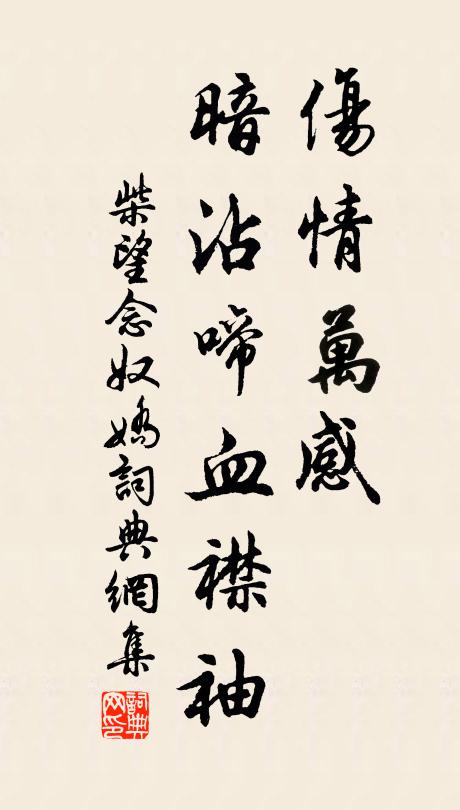 傷情萬感
暗沾啼血襟袖
柴望念奴嬌詞典網集
詞典網印